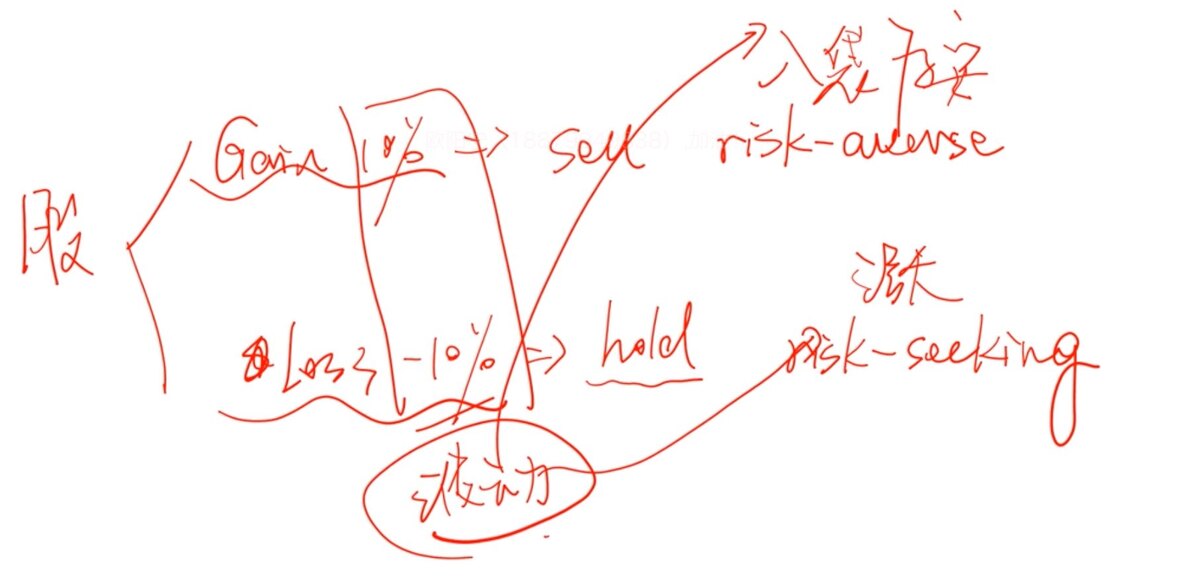 入袋为安
Gain 10% => sell risk-averse
股
涨
Loss -10% => hold risk-seeking
波动